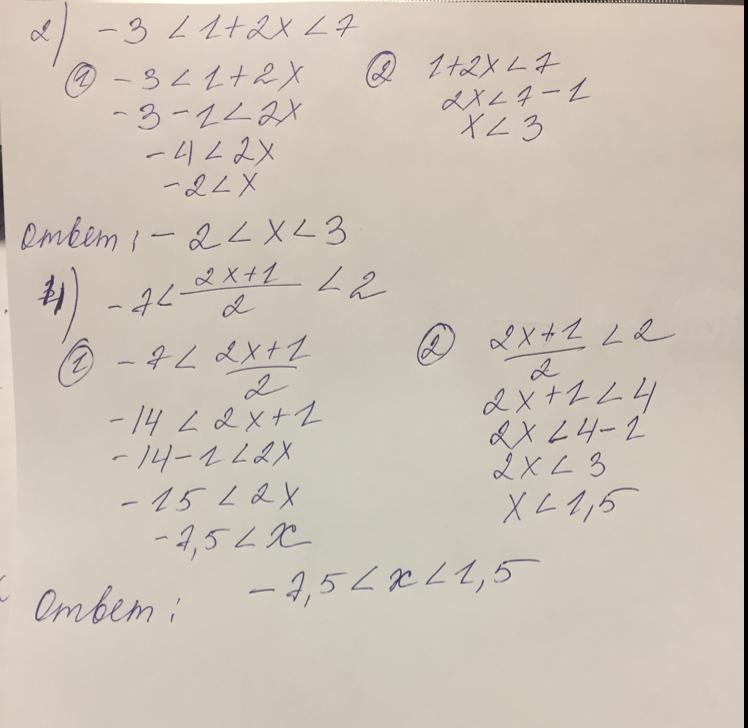 2) -3 < 1+2x < 7
① -3 < 1+2x
-3-1 < 2x
-4 < 2x
-2 < x
② 1+2x < 7
2x < 7-1
x < 3
Ответ: -2 < x < 3
4) -7 < (2x+1)/2 < 2
① -7 < (2x+1)/2
-14 < 2x+1
-14-1 < 2x
-15 < 2x
-7,5 < x
② (2x+1)/2 < 2
2x+1 < 4
2x < 4-1
2x < 3
x < 1,5
Ответ: -7,5 < x < 1,5